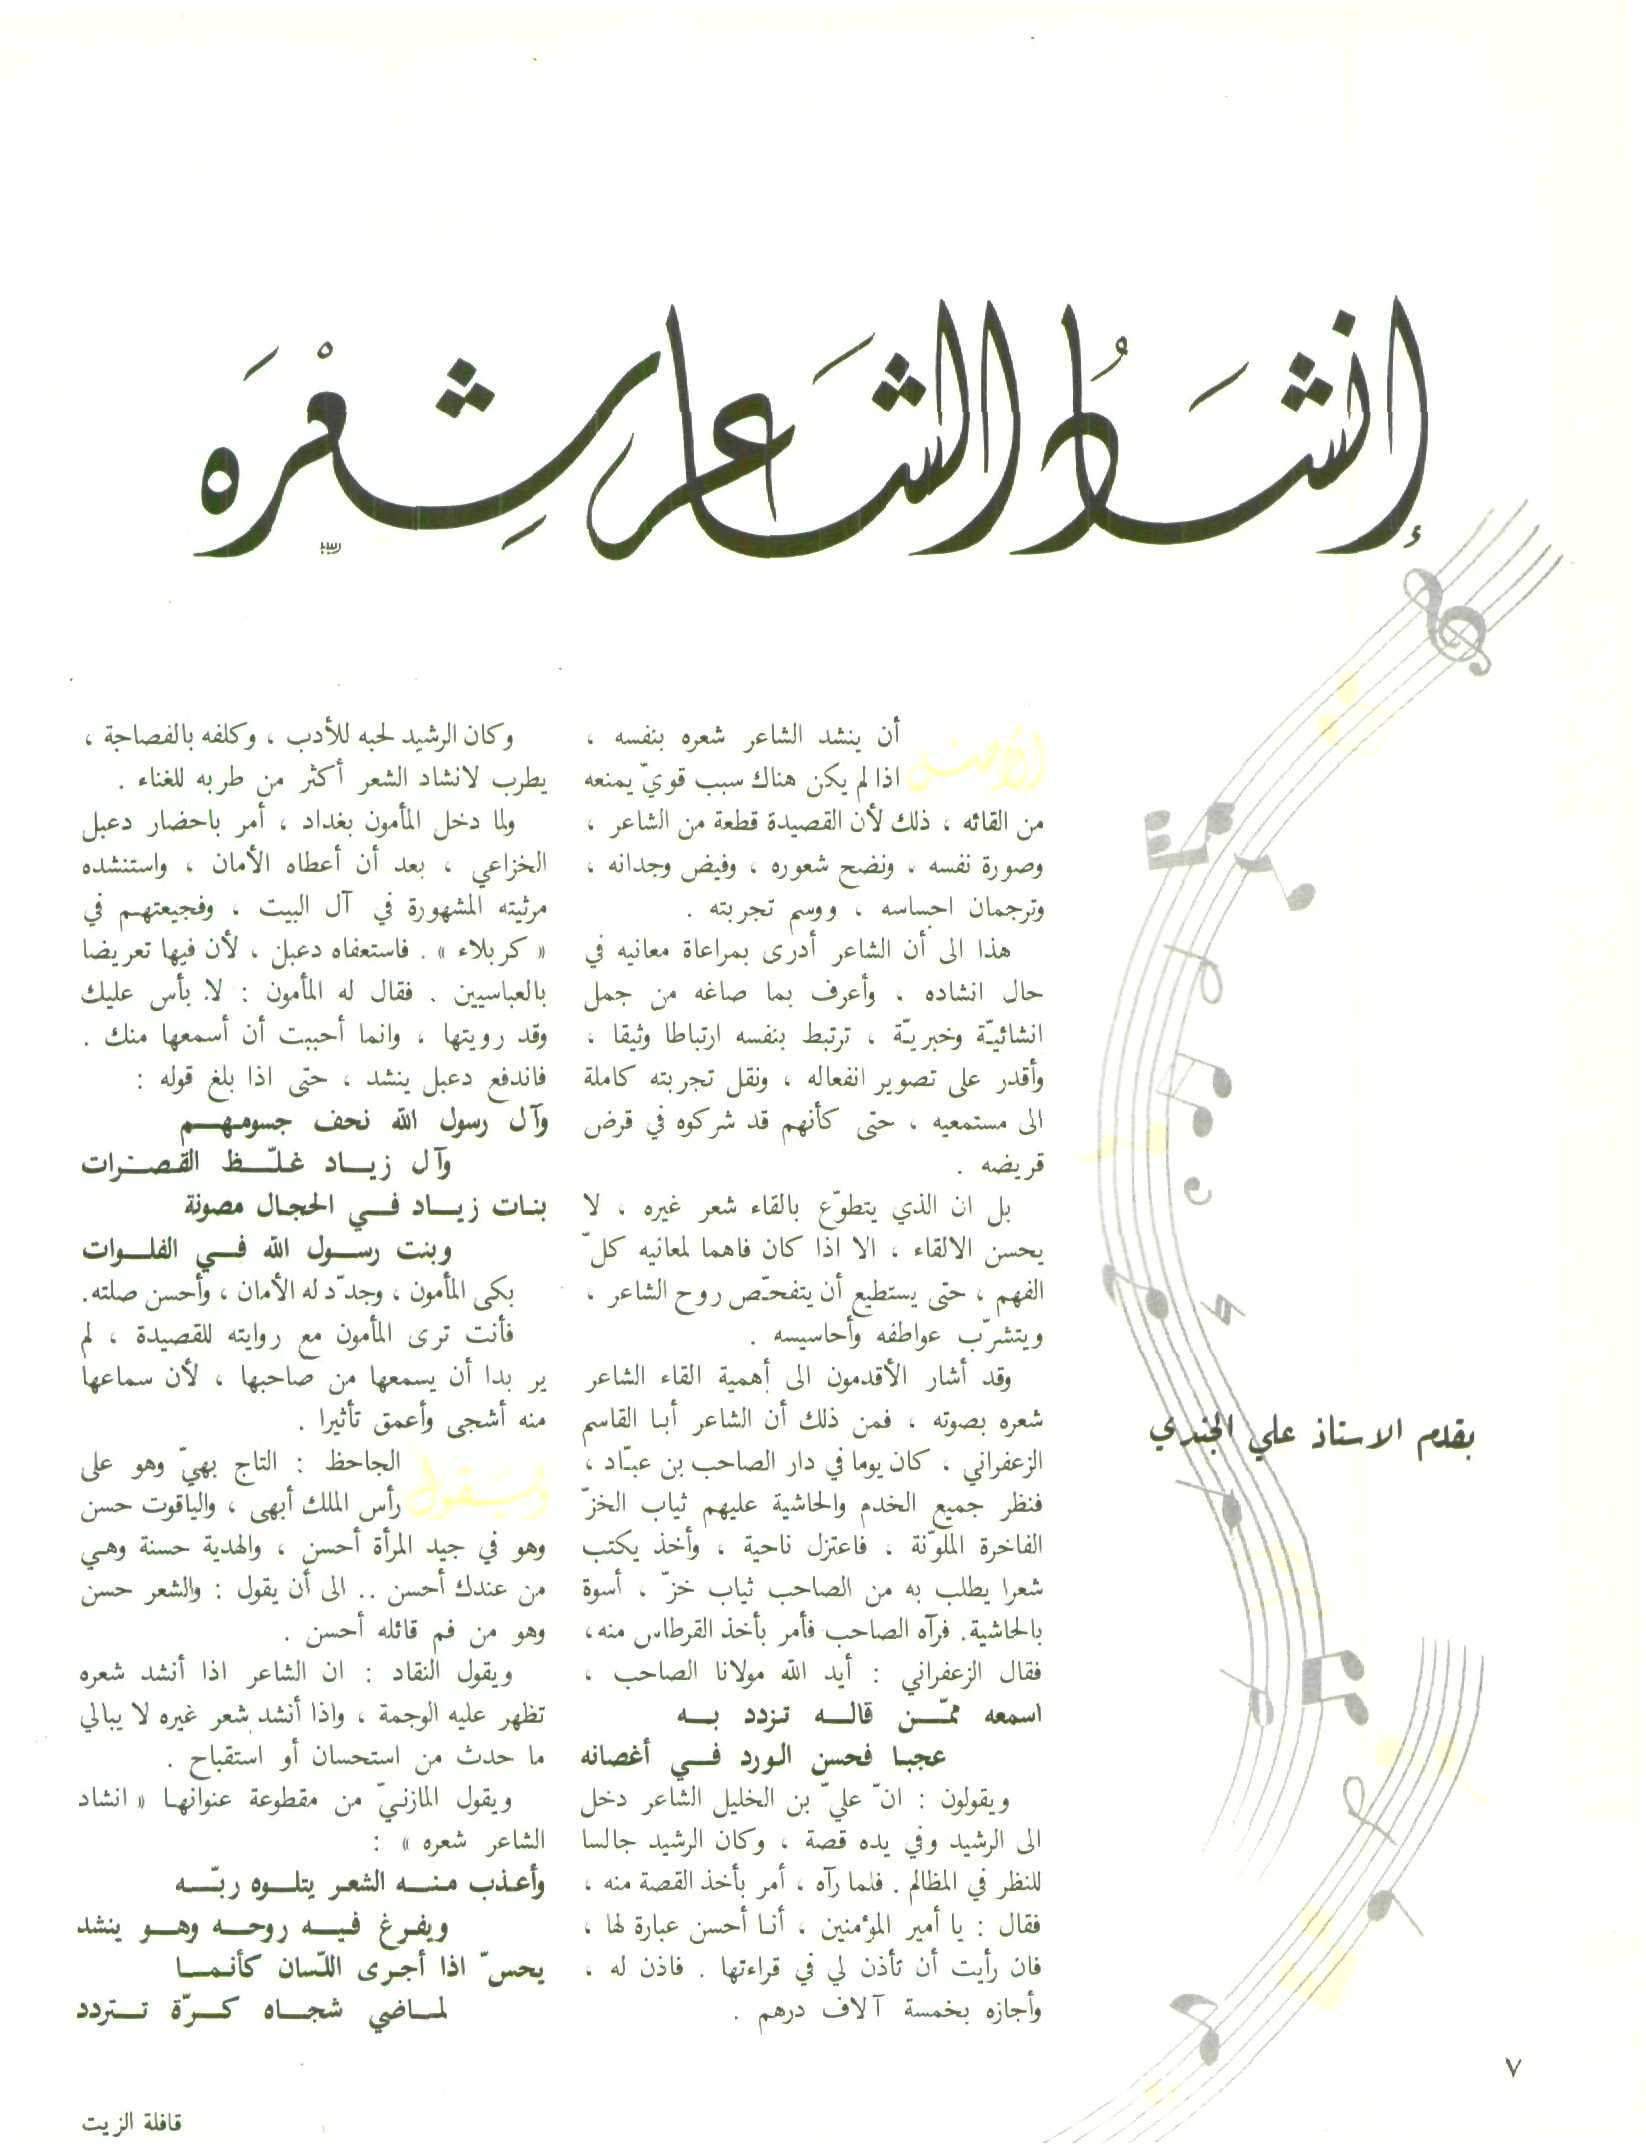 إنشاد الشاعر شعره
بقلم الاستاذ علي الجندي
الأصل أن ينشد الشاعر شعره بنفسه ،
اذا لم يكن هناك سبب قويّ يمنعه
من القائه ، ذلك لأن القصيدة قطعة من الشاعر ،
وصورة نفسه ، ونضح شعوره ، وفيض وجدانه ،
وترجمان احساسه ، ووسم تجربته .
هذا الى أن الشاعر أدرى بمراعاة معانيه في
حال انشاده ، وأعرف بما صاغه من جمل
انشائيّة وخبريّة ، ترتبط بنفسه ارتباطا وثيقا ،
وأقدر على تصوير انفعاله ، ونقل تجربته كاملة
الى مستمعيه ، حتى كأنهم قد شركوه في قرض
قريضه .
بل ان الذي يتطوّع بالقاء شعر غيره ، لا
يحسن الالقاء ، الا اذا كان فاهما لمعانيه كلّ
الفهم ، حتى يستطيع أن يتفحّص روح الشاعر ،
ويتشرّب عواطفه وأحاسيسه .
وقد أشار الأقدمون الى أهمية القاء الشاعر
شعره بصوته ، فمن ذلك أن الشاعر أبا القاسم
الزعفراني ، كان يوما في دار الصاحب بن عبّاد ،
فنظر جميع الخدم والحاشية عليهم ثياب الخزّ
الفاخرة الملوّنة ، فاعتزل ناحية ، وأخذ يكتب
شعرا يطلب به من الصاحب ثياب خزّ ، أسوة
بالحاشية. فرآه الصاحب فأمر بأخذ القرطاس منه،
فقال الزعفراني : أيد الله مولانا الصاحب ،
اسمعه ممّن قاله تزدد به
عجبا فحسن الورد في أغصانه
ويقولون : انّ عليّ بن الخليل الشاعر دخل
الى الرشيد وفي يده قصة ، وكان الرشيد جالسا
للنظر في المظالم . فلما رآه ، أمر بأخذ القصة منه ،
فقال : يا أمير المؤمنين ، أنا أحسن عبارة لها ،
فان رأيت أن تأذن لي في قراءتها . فاذن له ،
وأجازه بخمسة آلاف درهم .
وكان الرشيد لحبه للأدب ، وكلفه بالفصاحة ،
يطرب لانشاد الشعر أكثر من طربه للغناء .
ولما دخل المأمون بغداد ، أمر باحضار دعبل
الخزاعي ، بعد أن أعطاه الأمان ، واستنشده
مرثيته المشهورة في آل البيت ، وفجيعتهم في
« كربلاء » . فاستعفاه دعبل ، لأن فيها تعريضا
بالعباسيين . فقال له المأمون : لا بأس عليك
وقد رويتها ، وانما أحببت أن أسمعها منك .
فاندفع دعبل ينشد ، حتى اذا بلغ قوله :
وآل رسول الله نحف جسومهم
وآل زياد غلّظ القصرات
بنات زياد في الحجال مصونة
وبنت رسول الله في الفلوات
بكى المأمون ، وجدّد له الأمان ، وأحسن صلته.
فأنت ترى المأمون مع روايته للقصيدة ، لم
ير بدا أن يسمعها من صاحبها ، لأن سماعها
منه أشجى وأعمق تأثيرا .
ويقول الجاحظ : التاج بهيّ وهو على
رأس الملك أبهى ، والياقوت حسن
وهو في جيد المرأة أحسن ، والهدية حسنة وهي
من عندك أحسن .. الى أن يقول : والشعر حسن
وهو من فم قائله أحسن .
ويقول النقاد : ان الشاعر اذا أنشد شعره
تظهر عليه الوجمة ، واذا أنشد شعر غيره لا يبالي
ما حدث من استحسان أو استقباح .
ويقول المازنيّ من مقطوعة عنوانها « انشاد
الشاعر شعره » :
وأعذب منه الشعر يتلوه ربّه
ويفرغ فيه روحه وهو ينشد
يحسّ اذا أجرى اللّسان كأنما
لماضي شجاه كرّة تتردد
٧
قافلة الزيت